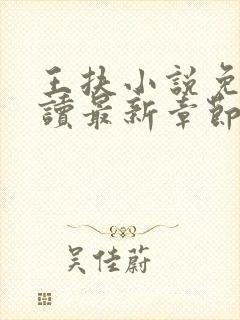 王扶小说免
讀最新章節
吴佳蔚